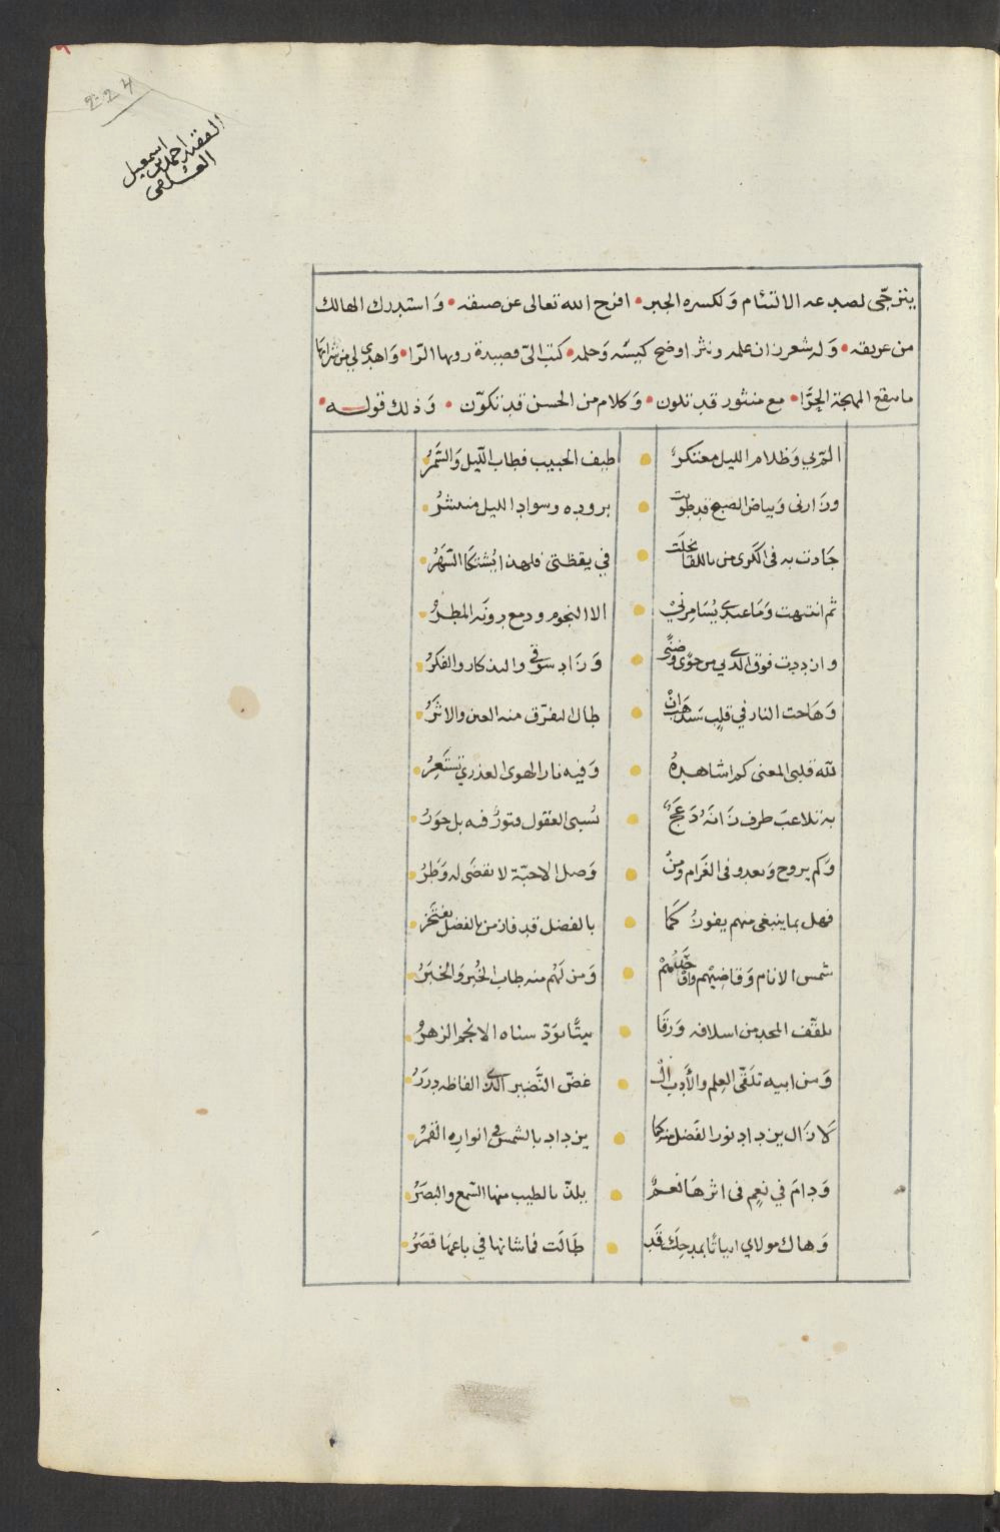 الفقير احمد بن اسمعيل
العلمى
يترجّى لصدعه الالتئام وَلكسره الجبر • افرح الله تعالى عن ضيقه • وَاستدرك الهالك
من غريقه • وَله شعر زان علمه ونثر اوضح كيسَه وَحلمه • كتب الىّ قصيدة رويها الرّا • وَاهدى لي من
المهجة الحرَّا • مع منثور قد تلون • وَكلام من الحسن قد تكوّن • وَذلك قولـــه •
الم بي وَظلام الليل معتكرٌ • طيف الحبيب فطاب اللّيل وَالسَّمَرُ
وزارنى وَبياض الصبح قد طويت • بروده وسواد الليل منتشرُ
جَادت به فى الكَرى من باللقا بخلَت • في يقظتى فلهذا يُشتكَا السَّهَرُ
ثم انتبهت وَمَا عندى يُسَامِرنيْ • الا النجوم ودمع دونَه المطرُ
وازددت فوق الذي بي من جوًى وضنًى • وَزاد شوقي والتذكار والفكرُ
وَهَاجت النار في قلبٍ • طال التفرّق منه العين والاثرُ
لله قلبى المعنى كم اشاهدهُ • وَفيه نار الهوى العذري تستَعِرُ
به تلاعبَ طرف زَانَهُ دَعَجٌ • تسبى العقول فتورٌ فيه بل حوَرُ
وَكم يروح وَيغدو فى الغَرام وَمنْ • وَصل الاحبّة لا يقضَى له وَطرُ
فهل بما ينبغى منهم يفوزُ كمَا • بالفضل قد فاز من بالفضل يفتَخرُ
شمس الانام وَقاضيهم • وَمن لَهُم منه طاب الخُبر وَالخبَرُ
تلقّف المجد من اسلافه وَرقَا • بيتًا تودّ سناه الانجم الزهرُ
وَمن ابيه تلَقّى العِلم والأدب الـ • غضّ النَّضير الذي الفاظه دررُ
لا زَال يزداد نور الفَضل منه كما • يزداد بالشمس في انواره القمرُ
وَدامَ في نعِم فى اثرهَا نعـمٌ • يلذّ بالطيب منها السّمع والبصَرُ
وَهاك مولاي ابياتًا بمدحِكَ قَد • طَالَت فما شانها في باعهَا قصَرُ